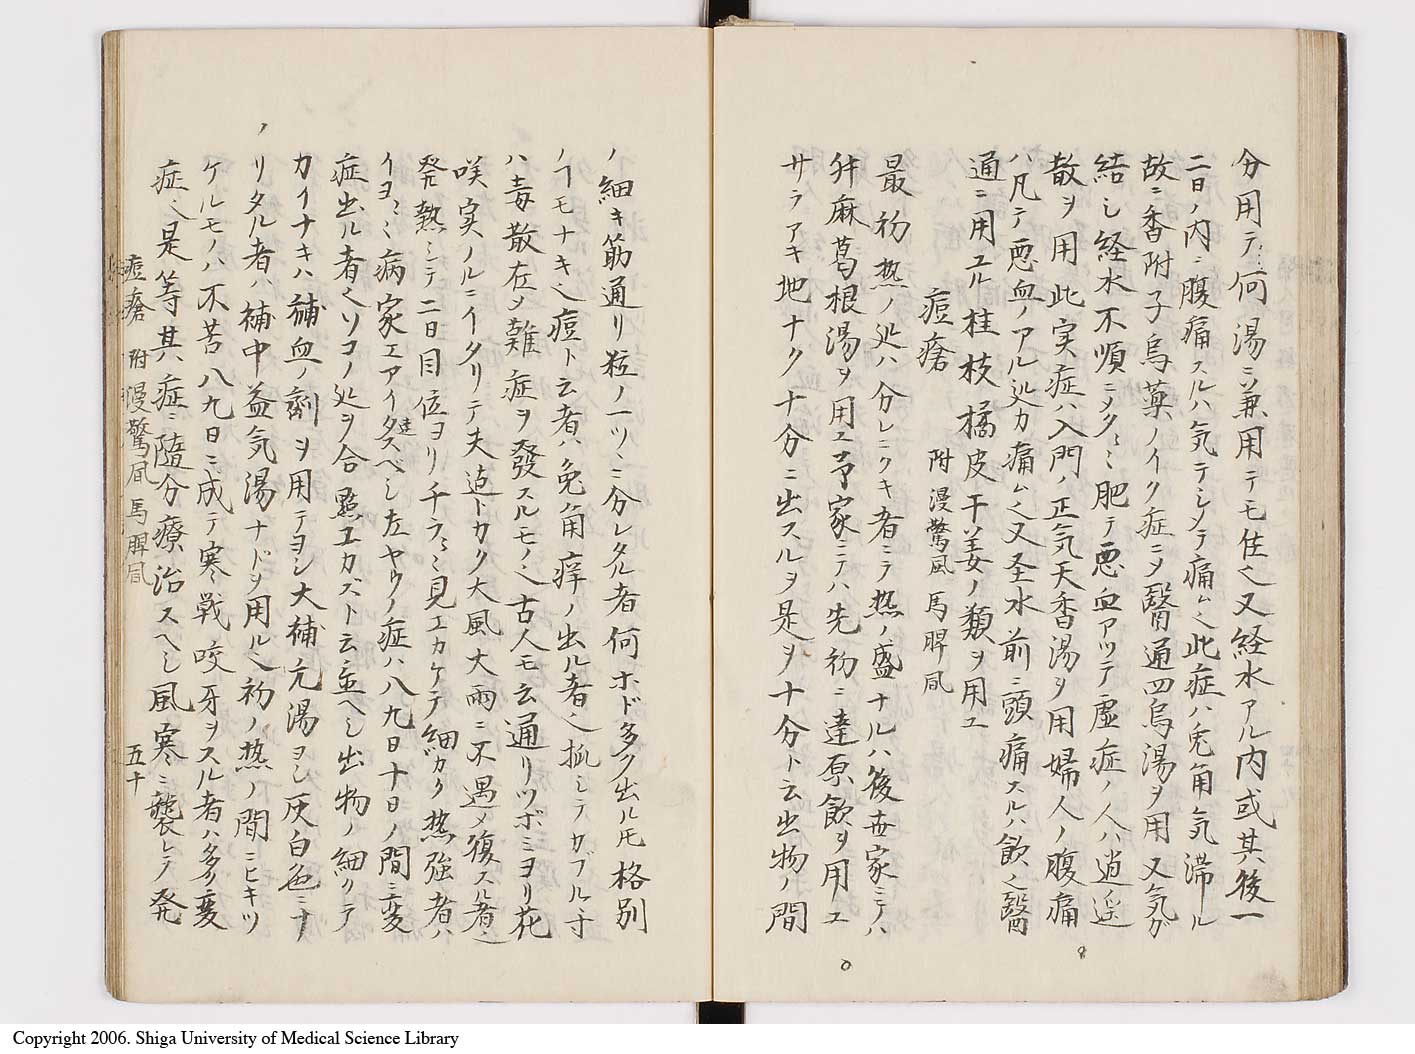 分用テ何湯ニ兼用テモ佳也又経水アル内或其後一
二日ノ内ニ腹痛スルハ気テシメテ痛ム也此症ハ兎角気滞ル
故ニ香附子烏薬ノイク症ニメ醫通四烏湯ヲ用又気ガ
結シ経水不順ニメクミ肥テ悪血アツテ虚症ノ人ハ逍遥
散ヲ用此実症ハ入門ノ正気天香湯ヲ用婦人ノ腹痛
ハ凡テ悪血ノアル処カ痛ム也又圣水前ニ頭痛スルハ飲也醫
通ニ用ユル桂枝橘皮干姜ノ類ヲ用ユ
痘瘡 附 漫驚風 馬脾風
最初熱ノ処ハ分レニクキ者ニテ熱ノ盛ナルハ後世家ミテハ
舛麻葛根湯ヲ用ユ予家ミテハ先初ニ達原飲ヲ用ユ
サラアキ地ナク十分ニ出スルヲ是ヲ十分ト云出物ノ間
ノ細キ筋通リ粒ノ一ツミニ分レタル者何ホド多ク出ル𪜈格別
ノイモナキ也痘ト云者ハ兎角痒ノ出ル者也抓シテカブル寸
ハ毒散在メ難症ヲ發スルモノ也古人モ云通リツボミヨリ花
咲実ノルニイタリテ夫迄トカク大風大雨ニ不遇メ復スル者也
発熱シテ二日目位ヨリチラミ見エカケテ細カク熱強者ハ
イヨミ病家エアイタスベシ左ヤウノ症ハ八九日十日ノ間ニ変
症出ル者也ソコノ処ヲ合点エカズト云並ヘシ出物ノ細クア
カイナキハ補血ノ劑ヲ用テヨシ大補元湯ヨシ灰白色ミナ
リタル者ハ補中益気湯ナドヲ用ル也初ノ熱ノ間ニヒキツ
ケルモノハ不苦八九日ニ成テ寒戦咬牙ヲスル者ハ多ク変
症也是等其症ニ隨分療治スヘシ風寒ニ襲レテ発
痘瘡 附 漫驚風 馬脾風 五十
Copyright 2006. Shiga University of Medical Science Library